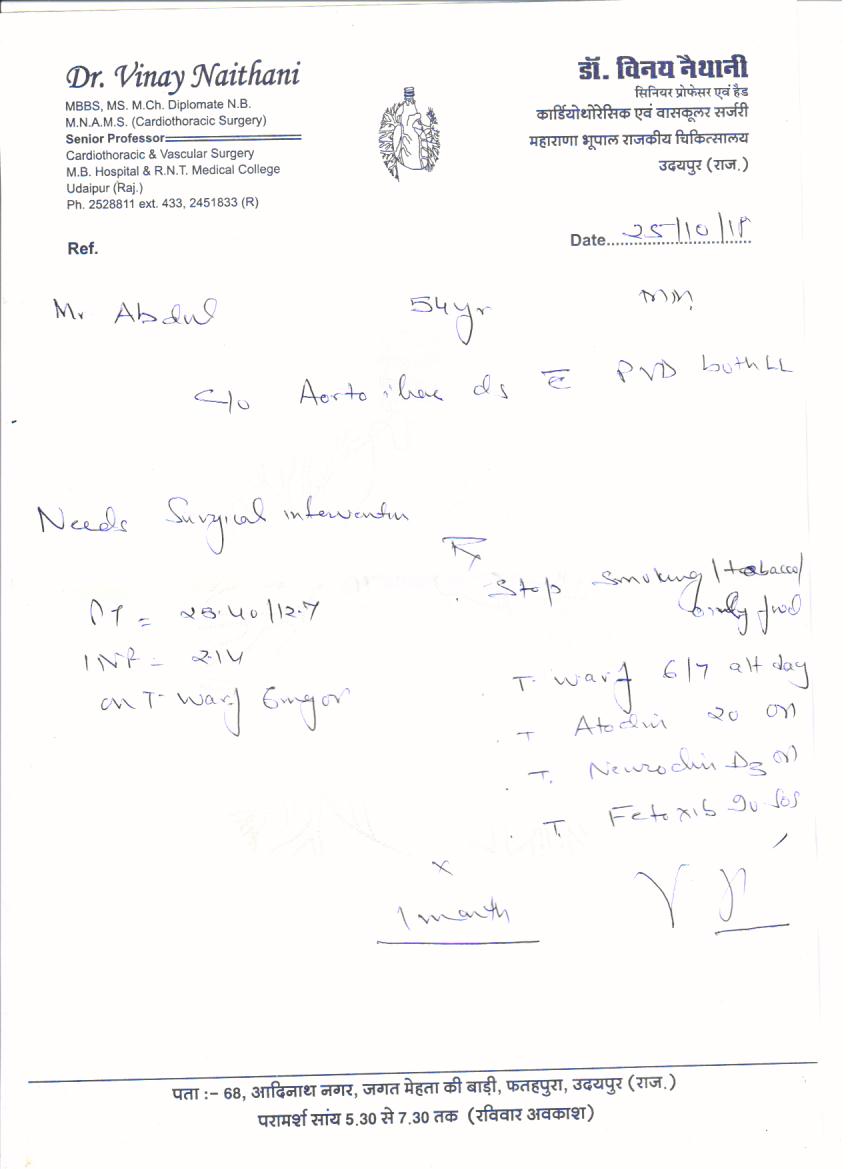 Dr. Vinay Naithani
MBBS, MS. M.Ch. Diplomate N.B.
M.N.A.M.S. (Cardiothoracic Surgery)
Senior Professor
Cardiothoracic & Vascular Surgery
M.B. Hospital & R.N.T. Medical College
Udaipur (Raj.)
Ph. 2528811 ext. 433, 2451833 (R)
डॉ. विनय नैथानी
सिनियर प्रोफेसर एवं हैड
कार्डियोथोरेसिक एवं वासकूलर सर्जरी
महाराणा भूपाल राजकीय चिकित्सालय
उदयपुर (राज.)
Ref.
Date 25/10/
Mr Abdul 54yr
c/o Aorto iliac ds c̅ PVD both LL
Needs Surgical intervention
Rx
Stop smoking/tobacco/
PT = 25.40/12.7
INR = 2.14
on T. Warf 6mg
T. Warf 6/7 alt day
T. 20 OD
T. D3 OD
T. 90 SOS
x
1 month
पता :– 68, आदिनाथ नगर, जगत मेहता की बाड़ी, फतहपुरा, उदयपुर (राज.)
परामर्श सांय 5.30 से 7.30 तक (रविवार अवकाश)